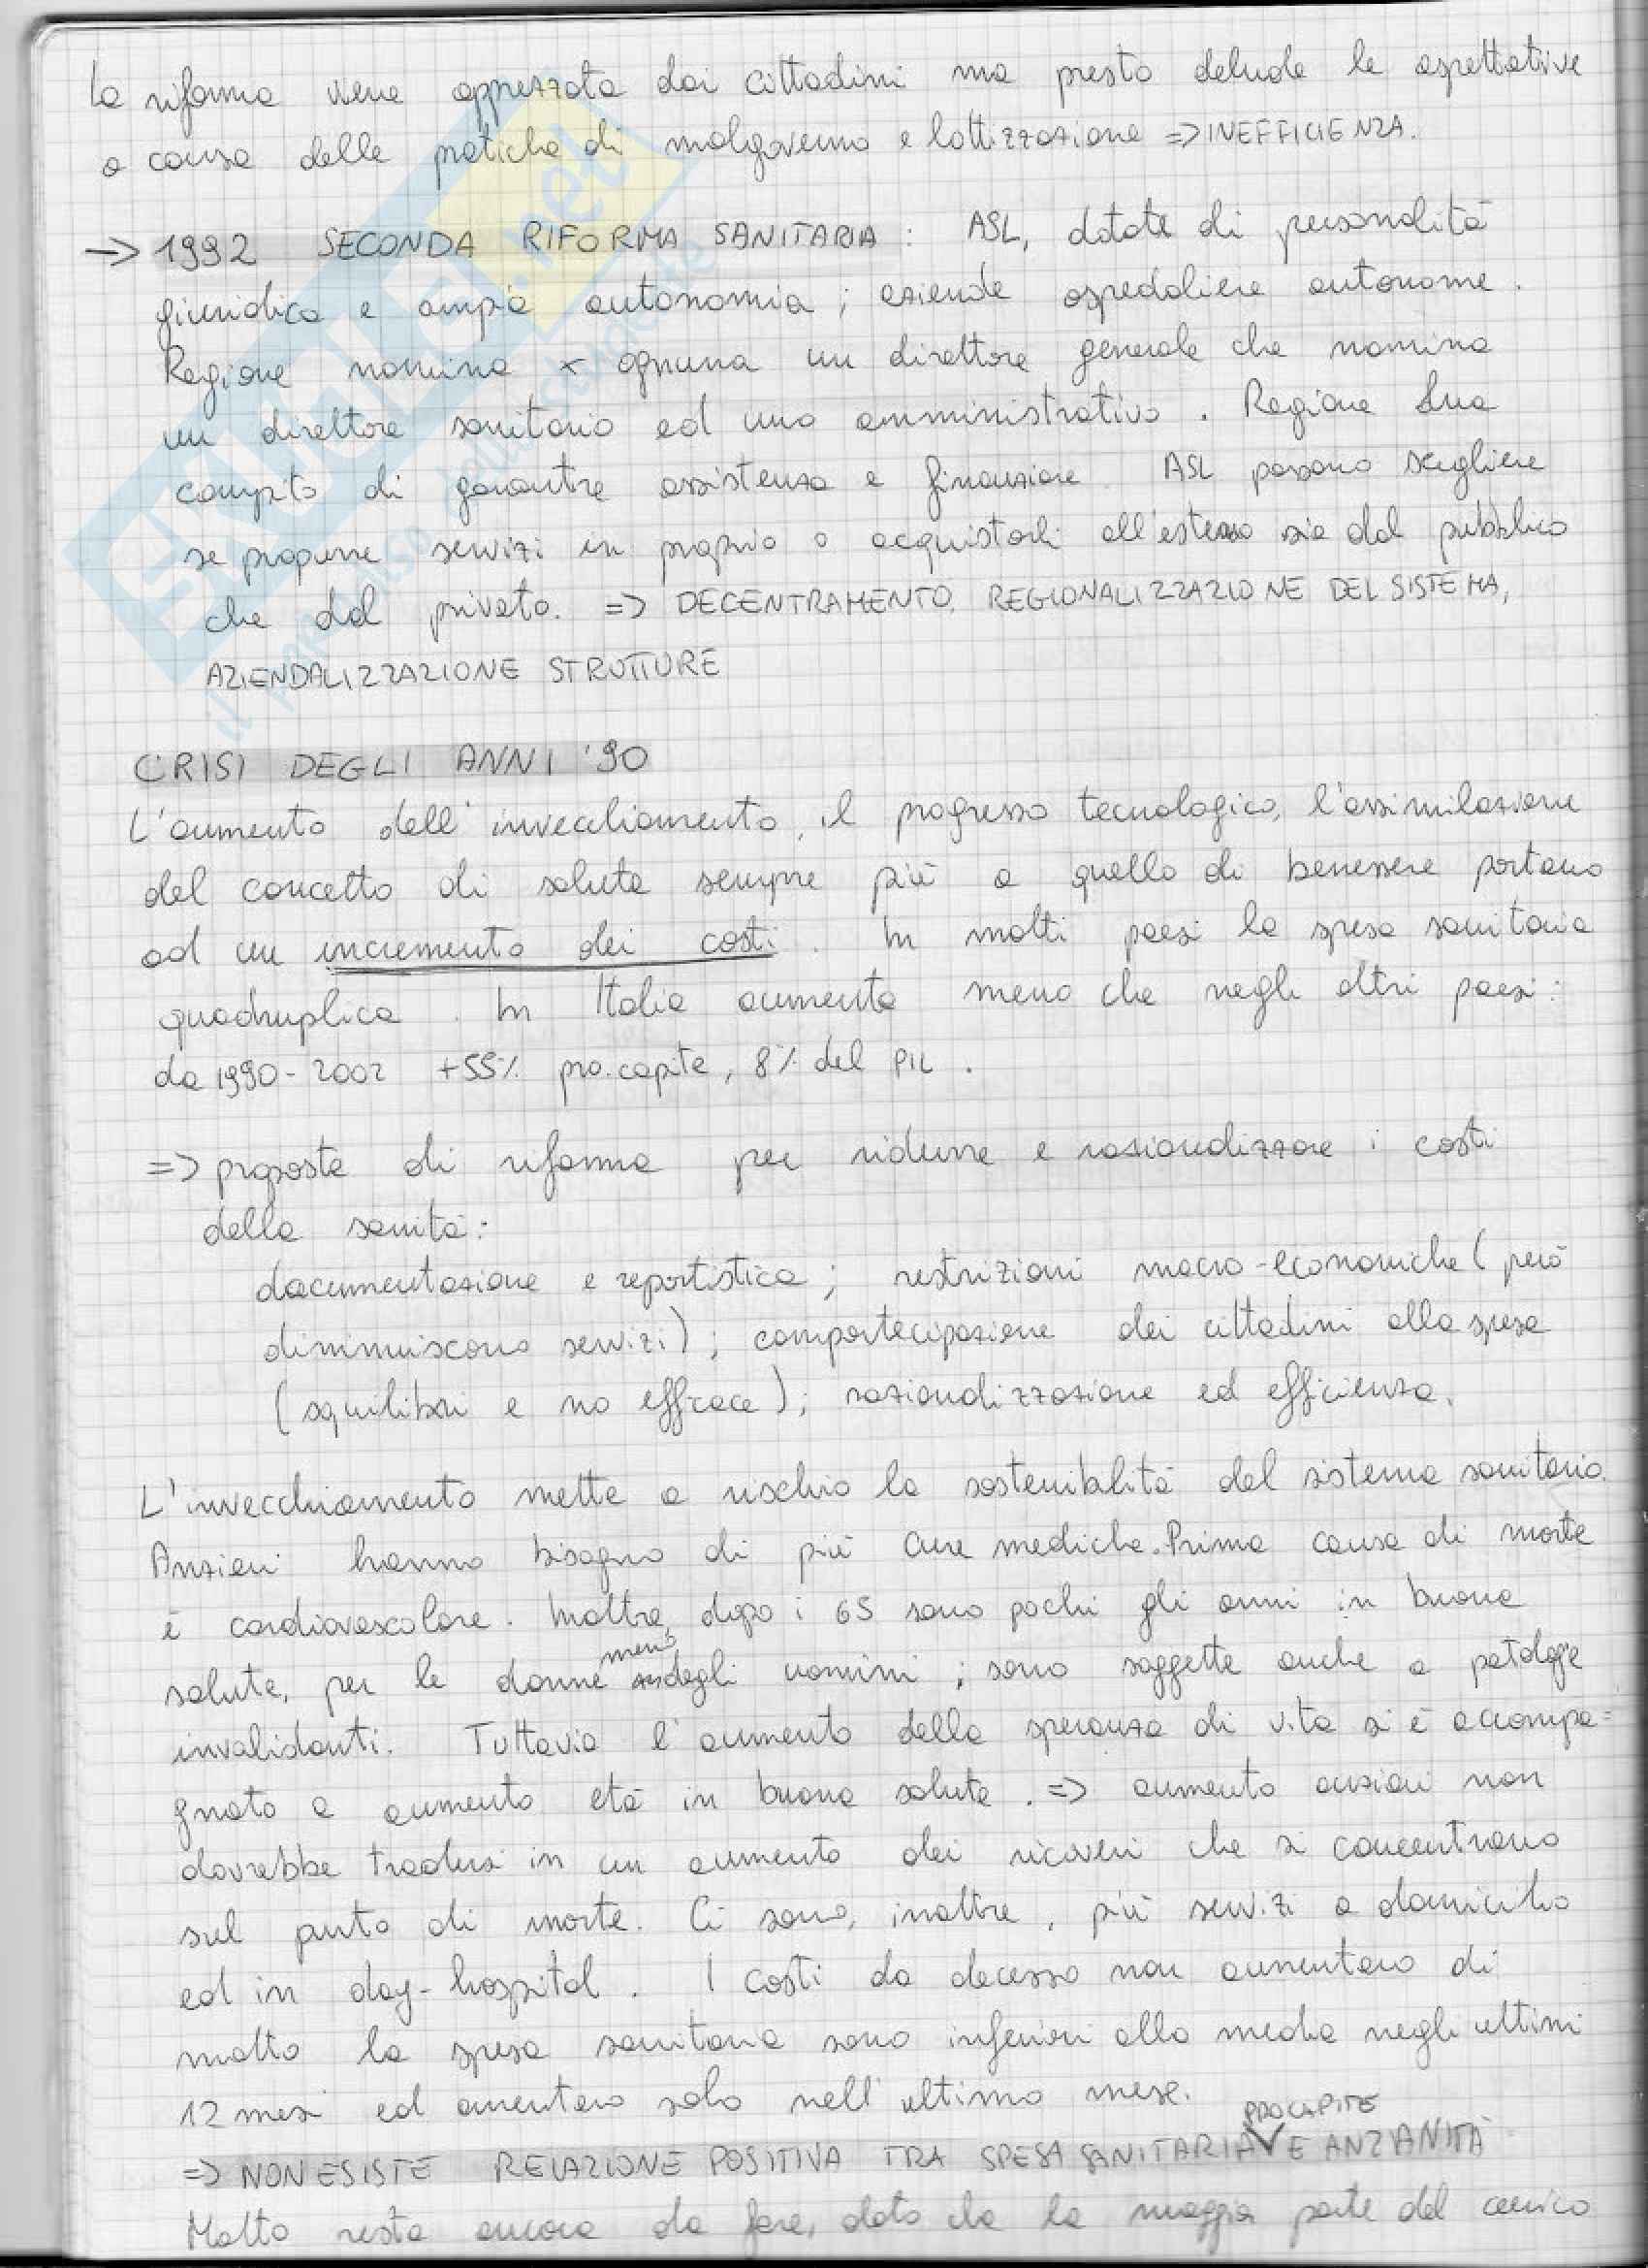 La riforma viene apprezzata dai cittadini ma presto delude le aspettative
a causa delle pratiche di malgoverno e lottizzazione => INEFFICIENZA.
-> 1992 SECONDA RIFORMA SANITARIA : ASL, dotate di personalità
giuridica e ampia autonomia ; aziende ospedaliere autonome .
Regione nomina x ognuna un direttore generale che nomina
un direttore sanitario ed uno amministrativo . Regione ha
compito di garantire assistenza e finanziare . ASL possono scegliere
se proporre servizi in proprio o acquistarli all'esterno sia dal pubblico
che dal privato. => DECENTRAMENTO, REGIONALIZZAZIONE DEL SISTEMA,
AZIENDALIZZAZIONE STRUTTURE
CRISI DEGLI ANNI '90
L'aumento dell'invecchiamento, il progresso tecnologico, l'assimilazione
del concetto di salute sempre più a quello di benessere portano
ad un incremento dei costi . In molti paesi la spesa sanitaria
quadruplica . In Italia aumenta meno che negli altri paesi :
da 1990 - 2002 +55% pro.capite, 8% del PIL .
=> proposte di riforma per ridurre e razionalizzare i costi
della sanità :
documentazione e reportistica ; restrizioni macro-economiche ( però
diminuiscono servizi ) ; compartecipazione dei cittadini alla spesa
( squilibri e no efficace ) ; razionalizzazione ed efficienza.
L'invecchiamento mette a rischio la sostenibilità del sistema sanitario.
Anziani hanno bisogno di più cure mediche. Prima causa di morte
è cardiovascolare . Inoltre, dopo i 65 sono pochi gli anni in buona
salute, per le donne meno degli uomini ; sono soggette anche a patologie
invalidanti. Tuttavia l'aumento della speranza di vita si è accompa=
gnato a aumento età in buona salute . => aumento anziani non
dovrebbe tradursi in un aumento dei ricoveri che si concentrano
sul punto di morte. Ci sono, inoltre, più servizi a domicilio
ed in day-hospital . I costi da decesso non aumentano di
molto la spesa sanitaria sono inferiori alla media negli ultimi
12 mesi ed aumentano solo nell'ultimo mese.
=> NON ESISTE RELAZIONE POSITIVA TRA SPESA SANITARIA PROCAPITE E ANZIANITÀ
Molto resta ancora da fare, dato che la maggior parte del carico